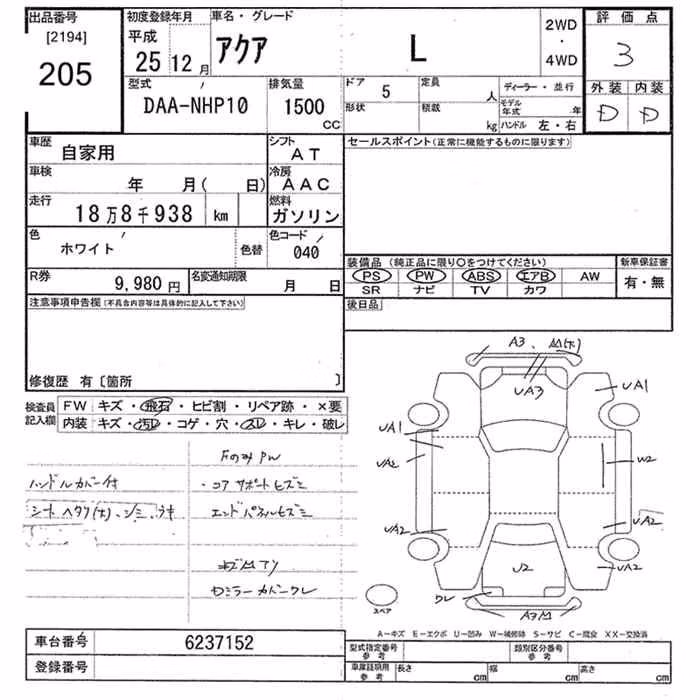 出品番号
[2194]
205
初度登録年月
平成
25 12月
車名・グレード
アクア L
2WD
・
4WD
評価点
3
型式
DAA-NHP10
排気量
1500
CC
ドア 5
形状
定員 人
積載 kg
ディーラー・並行
モデル年式 年
ハンドル 左・右
外装 内装
D D
車歴
自家用
シフト
AT
車検
年 月( 日)
冷房
AAC
走行
18万8千938 km
燃料
ガソリン
色
ホワイト
色替
色コード
040
R券
9,980円
名変通知期限
月 日
セールスポイント(正常に機能するものに限ります)
装備品(純正品に限り○をつけてください)
PS PW ABS エアB AW
SR ナビ TV カワ
新車保証書
有・無
後日品
注意事項申告欄(不具合内容等は具体的に記入して下さい)
修復歴 有〔箇所 〕
検査員
記入欄
FW キズ・飛石・ヒビ割・リペア跡・×要
内装 キズ・汚レ・コゲ・穴・スレ・キレ・破レ
Fのみ PW
ハンドルカバー付
・コアサポートヒズミ
エンドパネルヒズミ
ミラーカバーワレ
A3、
UA3
UA1
UA1
UA2
W2
UA2
UA2
UA2
U2
ワレ
スペア
A-キズ E-エクボ U-凹み W-補修跡 S-サビ C-腐食 XX-交換済
車台番号 6237152
登録番号
型式指定番号
参考
類別区分番号
参考
車庫証明用
参考
長さ cm
幅 cm
高さ cm